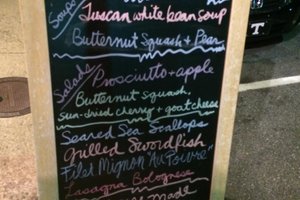 Soups
Tuscan white bean soup
Butternut Squash + Pear
Salads
Prosciutto + apple
Butternut squash,
Sun-dried cherry + goat cheese
Seared Sea Scallops
Grilled Swordfish
Filet Mignon "Au Poivre"
Lasagna Bolognese
Made
T